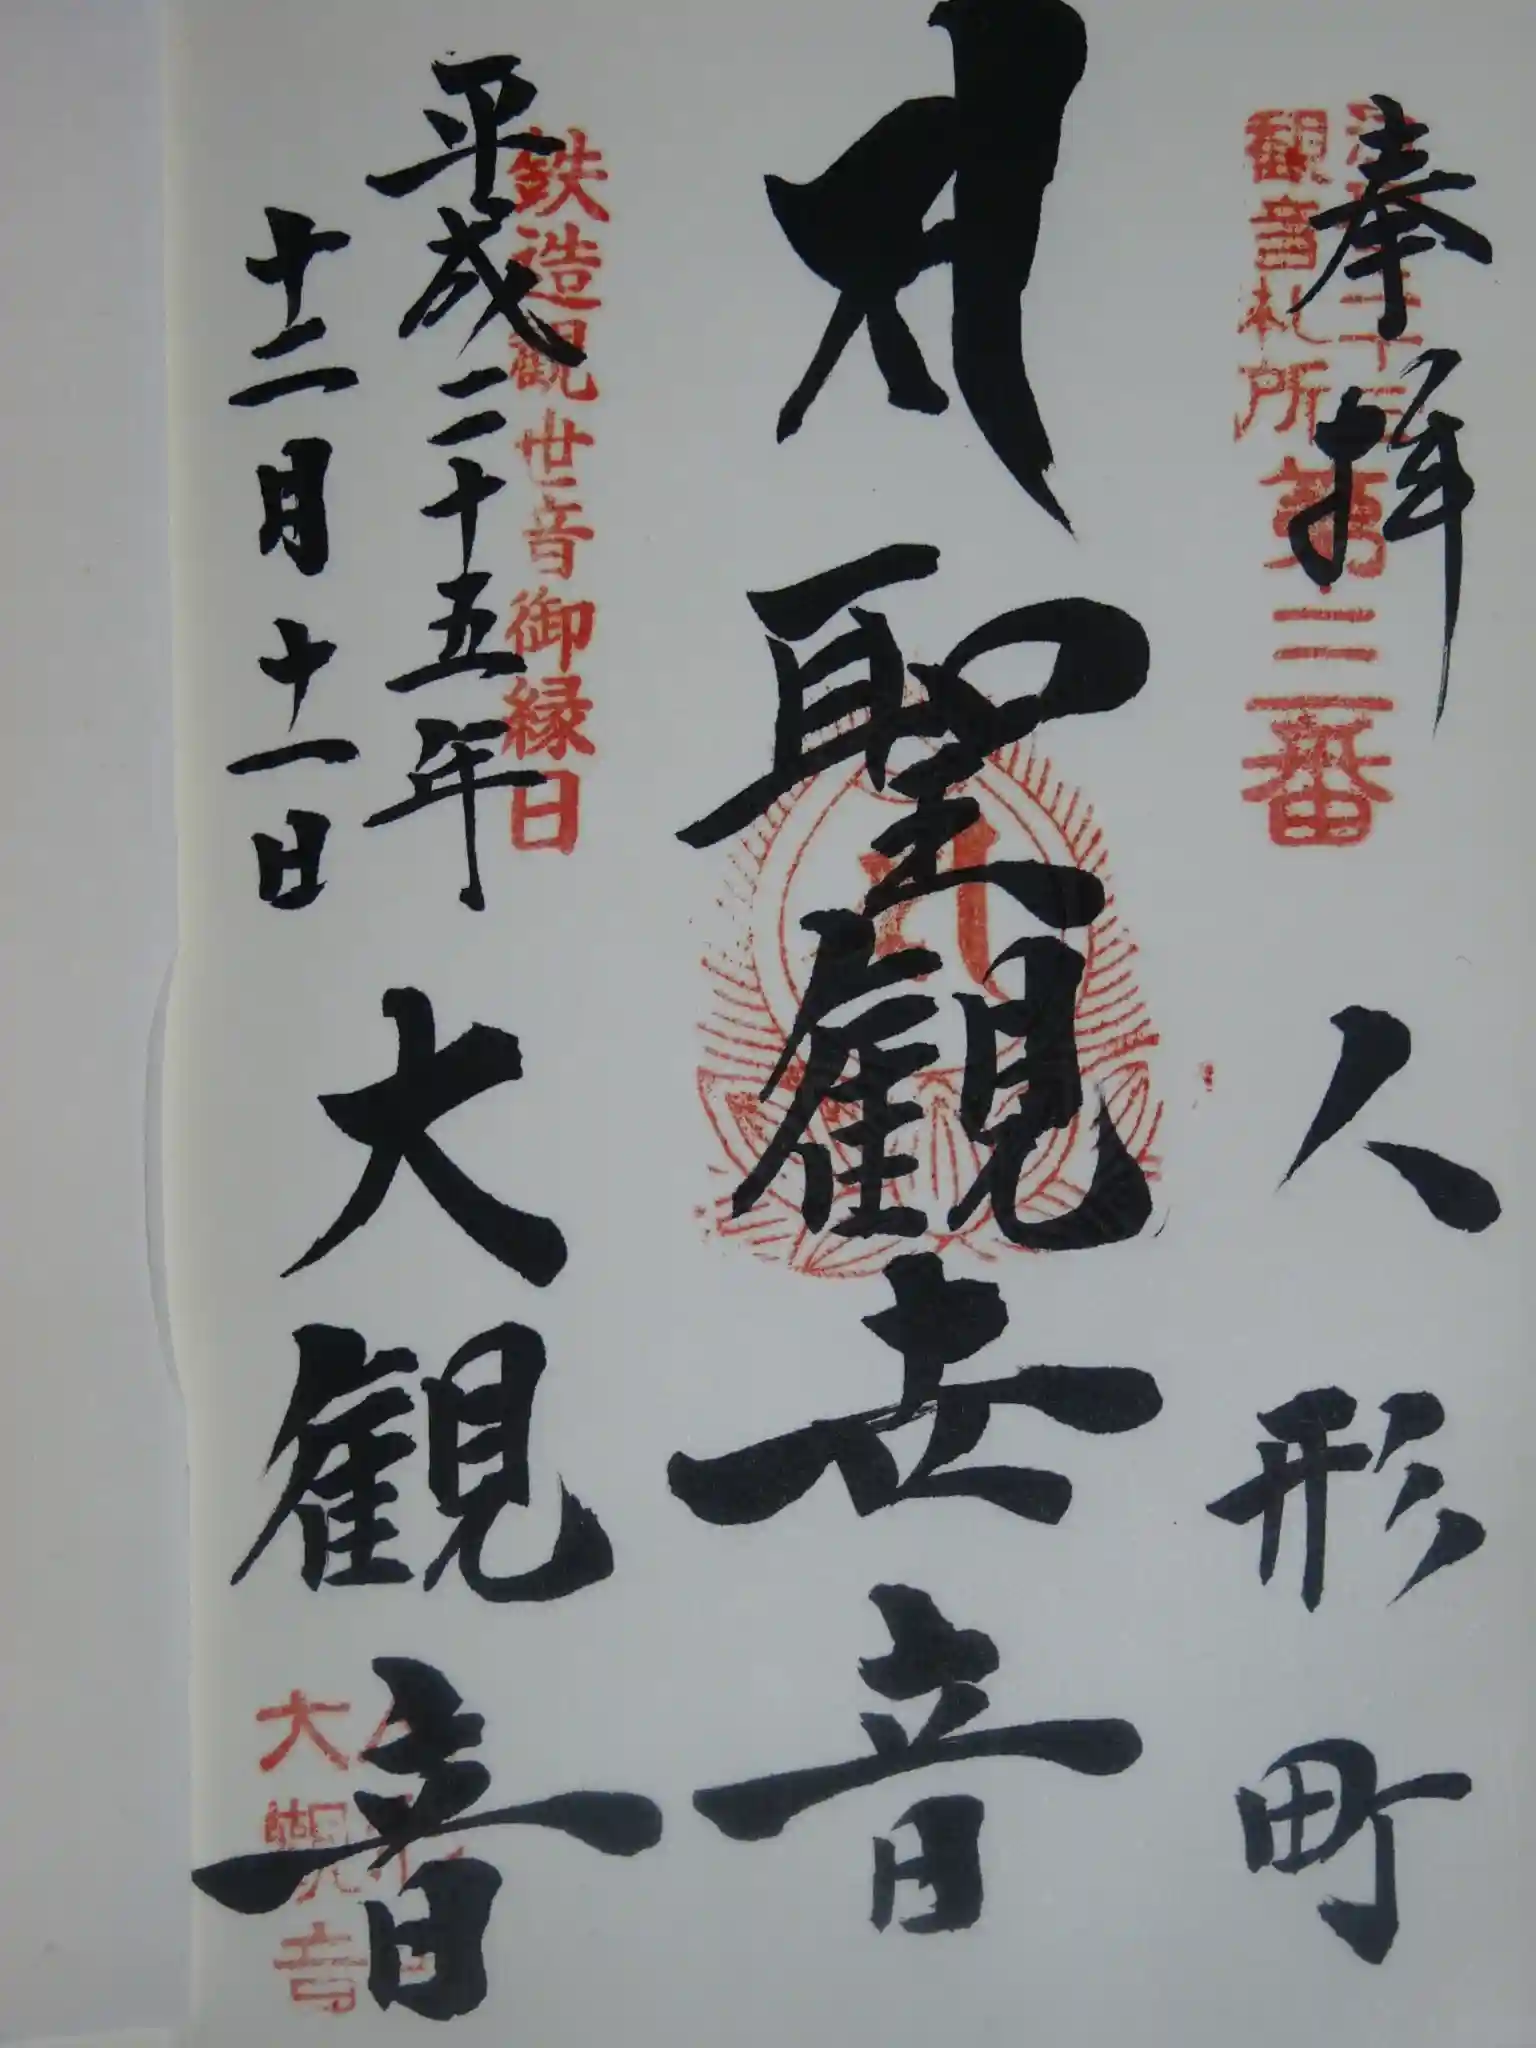 奉拝 人形町
観音札所第三番
サ 聖観世音
鉄造観世音御縁日
平成二十五年
十二月十一日
大観音
大観音